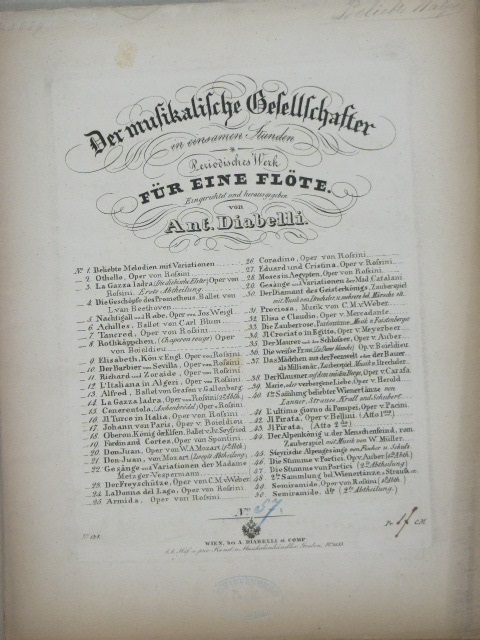 Der musikalische Gesellschafter
in einsamen Stunden
Periodisches Werk
FÜR EINE FLÖTE.
Eingerichtet und herausgegeben
von
Ant. Diabelli.
No 1. Beliebte Melodien mit Variationen
2. Othello, Oper von Rossini
3. La Gazza ladra, (Die diebische Elster) Oper von
Rossini. Erste Abtheilung
4. Die Geschöpfe des Prometheus, Ballet von
L. van Beethoven
5. Nachtigall und Rabe. Oper von Jos. Weigl
6. Achilles, Ballet von Carl Blum
7. Tancred, Oper von Rossini
8. Rothkäppchen, (Chaperon rouge) Oper
von Boieldieu
9. Elisabeth, Kön. v. Engl. Oper von Rossini
10. Der Barbier von Sevilla. Oper von Rossini
11. Richard und Zoraide. Oper von Rossini
12. L'Italiana in Algeri, Oper von Rossini
13. Alfred, Ballet von Grafen v. Gallenberg
14. La Gazza Ladra, Oper von Rossini
15. Cenerentola, (Aschenbrödel) Oper v. Rossini
16. Il Turco in Italia, Oper von Rossini
17. Johann von Paris, Oper v. Boieldieu
18. Oberon König der Elfen, Ballet v. Jv. Seyfried
19. Ferdinand Cortez, Oper von Spontini
20. Don Juan, Oper von W. A. Mozart
21. Don Juan, von Mozart
22. Gesänge und Variationen der Madame
Metzger-Vespermann
23. Der Freyschütze, Oper von C. M. v. Weber
24. La Donna del Lago, Oper von Rossini
25. Armida, Oper von Rossini
26. Coradino, Oper von Rossini
27. Eduard und Cristina, Oper v. Rossini
28. Moses in Aegypten, Oper von Rossini
29. Gesänge und Variationen der Mad. Catalani
30. Der Diamant des Geisterkönigs, Zauberspiel
31. Preciosa, Musik von C. M. v. Weber
32. Elisa e Claudio, Oper v. Mercadante
33. Die Zauberrose, Pantomime
34. Il Crociato in Egitto, Oper v. Meyerbeer
35. Der Maurer und der Schlosser, Oper v. Auber
36. Die weisse Frau, (La Dame blanche) Op. v. Boieldieu
37. Das Mädchen aus der Feenwelt oder der Bauer
als Millionär, Zauberspiel, Musik v. Drechsler
38. Oper v. Carafa
39. Marie, oder verborgene Liebe, Oper v. Herold
40. 1te Sammlung beliebter Wienertänze von
Lanner, Strauss, Krall und Schubert
41. L'ultimo giorno di Pompei, Oper v. Pacini
42. Il Pirata, Oper v. Bellini (Atto 1mo)
43. Il Pirata, (Atto 2do)
44. Der Alpenkönig u. der Menschenfeind, rom.
Zauberspiel mit Musik von W. Müller
45. Steyrische Alpengesänge von Fischer u. Schulz
46. Die Stumme v. Portici, Op. v. Auber
47. Die Stumme von Portici (2te Abtheilung)
48. 2te Sammlung bel. Wienertänze v. Strauss
49. Semiramide, Oper von Rossini
50. Semiramide, dto (2te Abtheilung)
No 57.
WIEN, bei A. DIABELLI et COMP